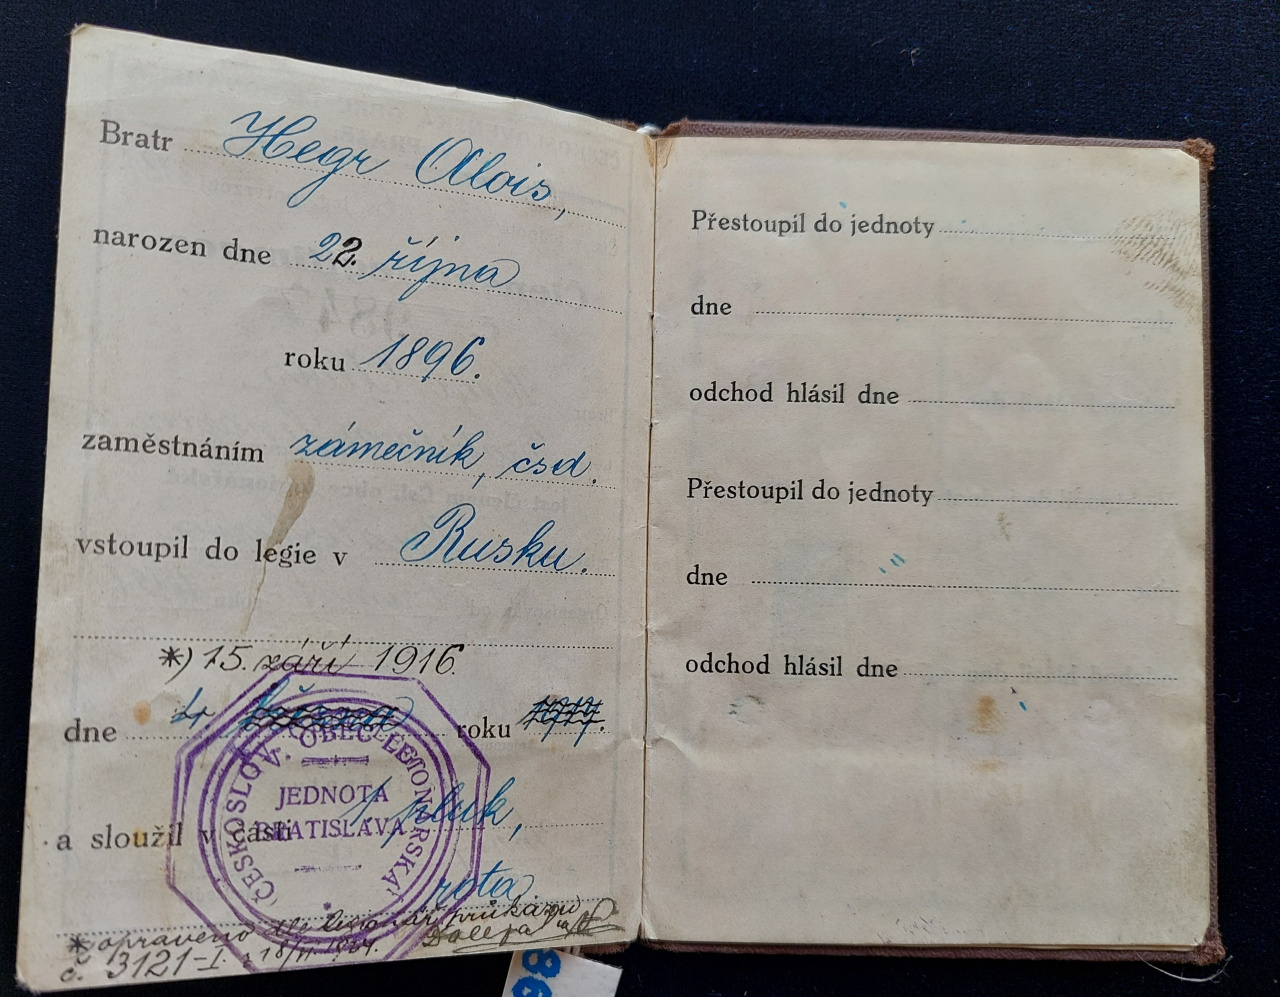 Bratr Hegr Alois,
narozen dne 22. října
roku 1896.
zaměstnáním zámečník, čsd.
vstoupil do legie v Rusku.
*) 15. září 1916.
dne roku 1917.
a sloužil v části pluk,
rota
* opraveno dle legionář. průkazu
č. 3121-I. z
ČESKOSLOV. OBEC LEGIONÁŘSKÁ
JEDNOTA
BRATISLAVA
Přestoupil do jednoty
dne
odchod hlásil dne
Přestoupil do jednoty
dne
odchod hlásil dne
86